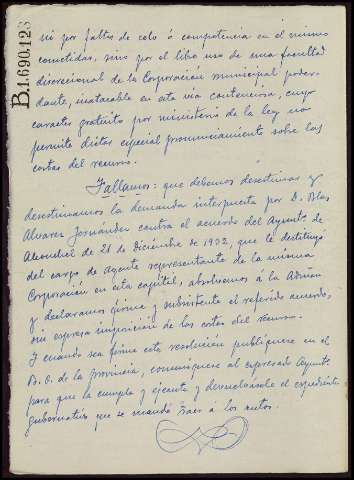 B1.690.123
ni por faltas de celo ó competencia en el mismo
cometidas, sino por el libre uso de una facultad
discrecional de la Corporación municipal poder-
dante, inatacable en esta via contenciosa, cuyo
caracter gratuito por ministerio de la ley no
permite dictar especial pronunciamiento sobre las
costas del recurso.
Fallamos: que debemos desestimar y
desestimamos la demanda interpuesta por D. Blas
Alvarez Fernández contra el acuerdo del Ayuntº de
de 21 de Diciembre de 1932, que le destituyó
del cargo de agente representante de la misma
Corporación en esta capital, absolvemos á la Admon
y declaramos firme y subsistente el referido acuerdo,
sin expresa imposición de las costas del recurso.
Y cuando sea firme esta resolución publiquese en el
B. O. de la provincia, comuniquese al expresado Ayuntº
para que la cumpla y ejecute y devuelvasele el expediente
gubernativo que se mandó traer a los autos.